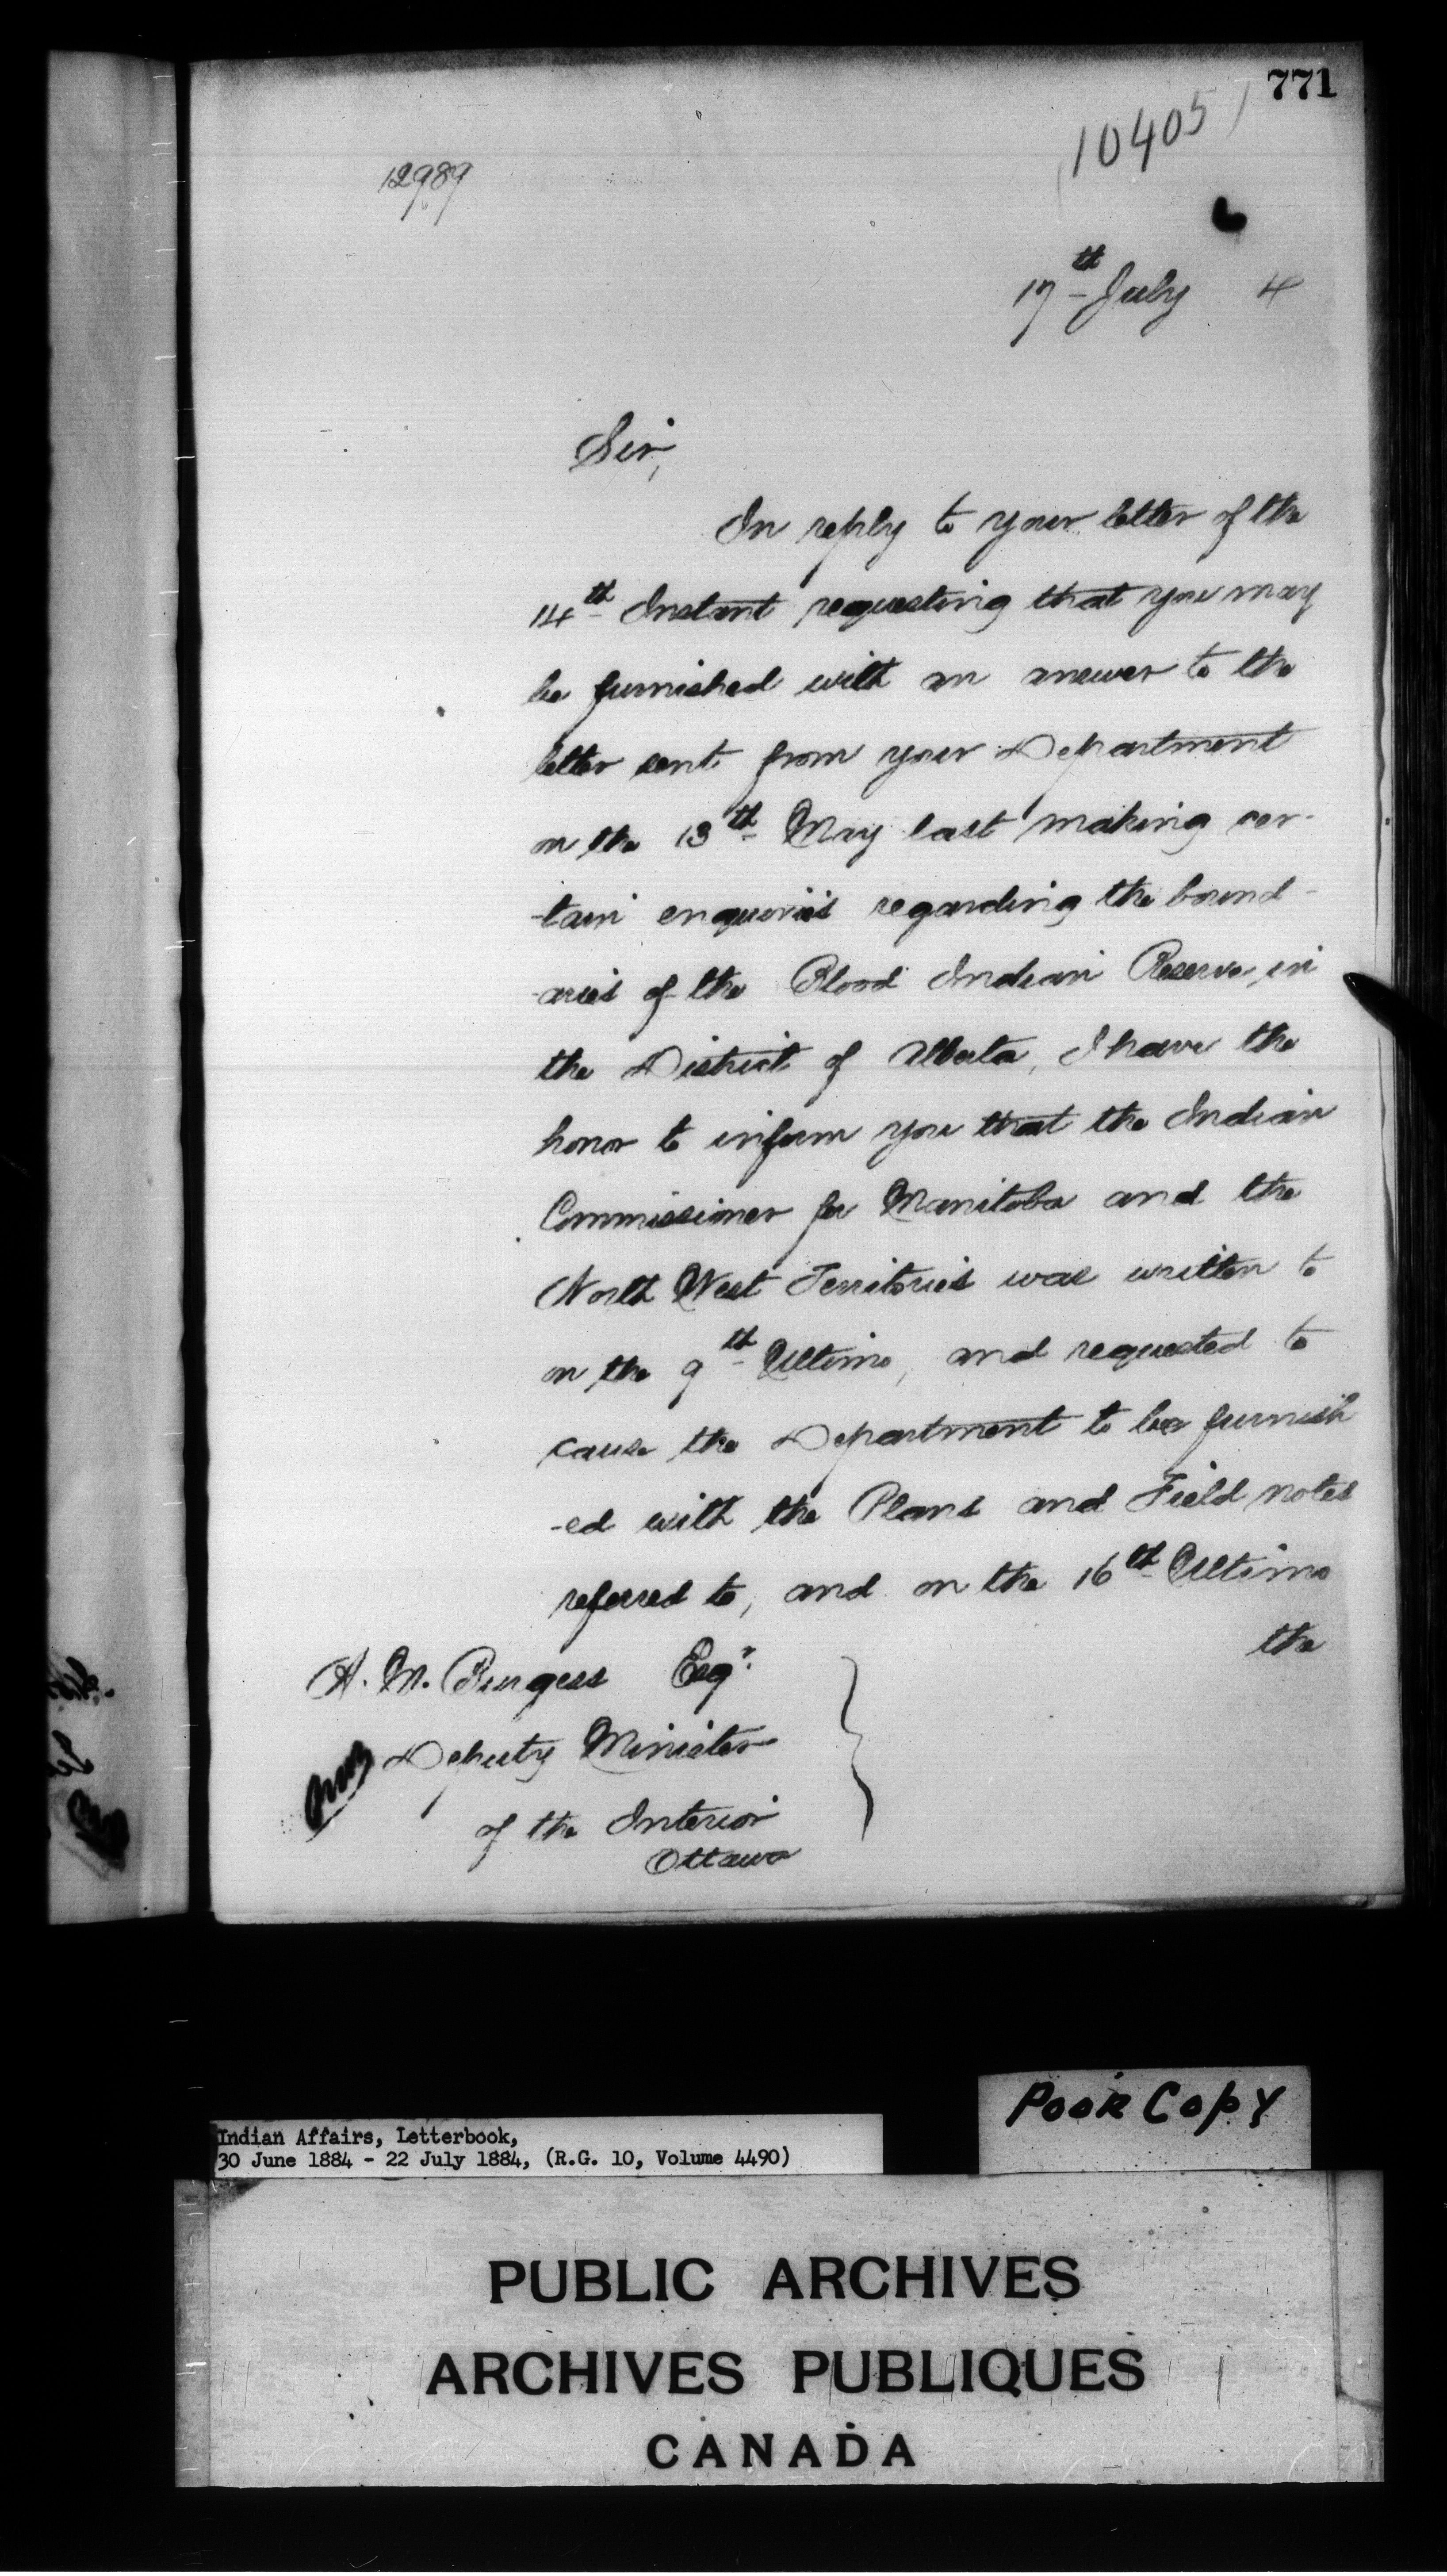 771
10405
12989
17th July 4
Sir,
In reply to your letter of the
14th Instant requesting that you may
be furnished with an answer to the
letter sent from your Department
on the 13th May last making cer-
-tain enquiries regarding the bound-
-aries of the Blood Indian Reserve in
the District of Alberta, I have the
honor to inform you that the Indian
Commissioner for Manitoba and the
North West Territories was written to
on the 9th Ultimo, and requested to
cause the Department to be furnish
-ed with the Plans and Field notes
referred to, and on the 16th Ultimo
the
A. M. Burgess Esqr.
Deputy Minister
of the Interior
Ottawa
Poor Copy
Indian Affairs, Letterbook,
30 June 1884 - 22 July 1884, (R.G. 10, Volume 4490)
PUBLIC ARCHIVES
ARCHIVES PUBLIQUES
CANADA